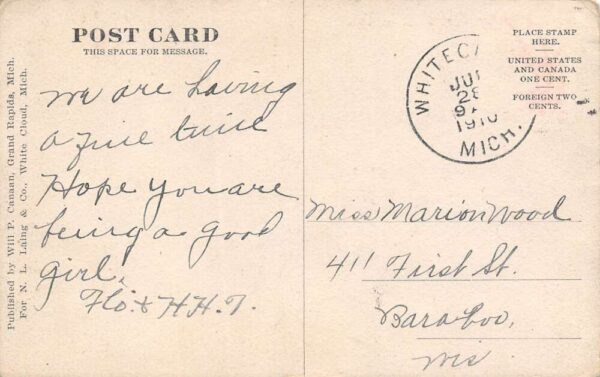 POST CARD
THIS SPACE FOR MESSAGE.
We are having
a fine time
Hope you are
being a good
girl.
Flo. & H.H.T.
Published by Will P. Canaan, Grand Rapids, Mich.
For N. L. Laing & Co., White Cloud, Mich.
WHITEC
28
1910
MICH.
PLACE STAMP
HERE.
UNITED STATES
AND CANADA
ONE CENT.
FOREIGN TWO
CENTS.
Miss Marion Wood
411 First St.
Baraboo,
Wis